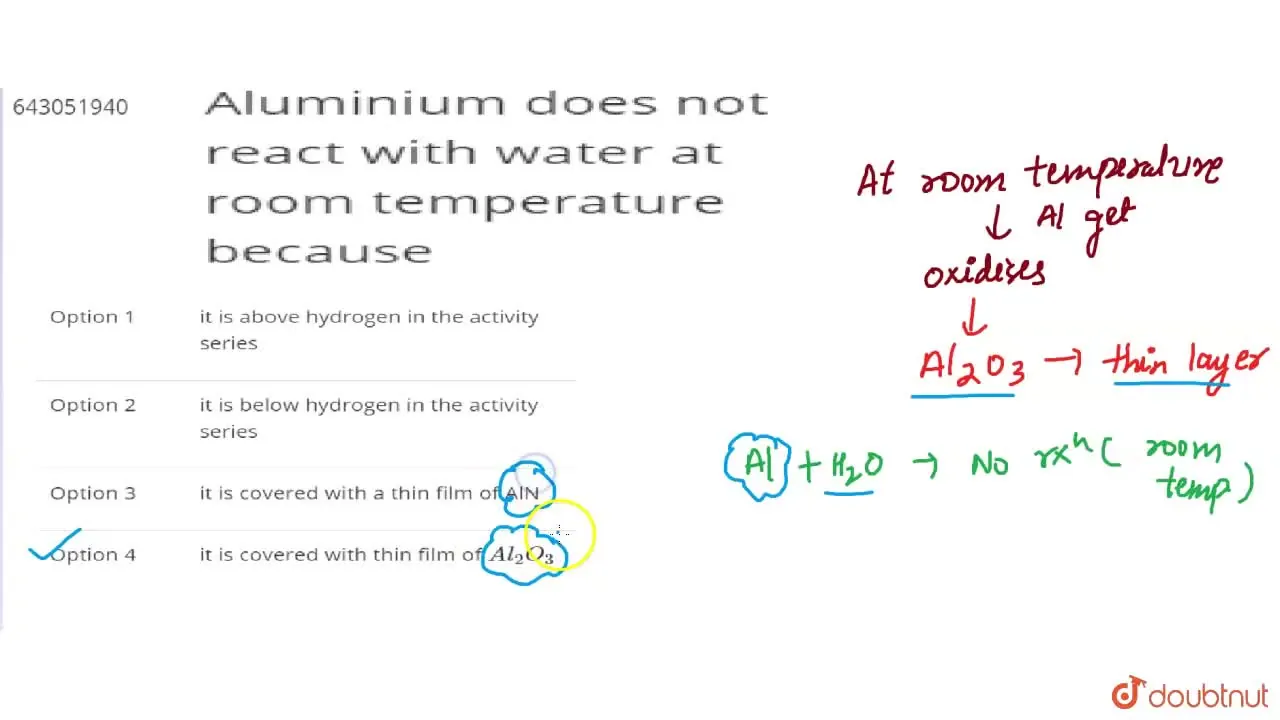 643051940
Aluminium does not
react with water at
room temperature
because
Option 1
it is above hydrogen in the activity
series
Option 2
it is below hydrogen in the activity
series
Option 3
it is covered with a thin film of AlN
Option 4
it is covered with thin film of Al₂O₃
At room temperature
↓ Al get
oxidises
↓
Al₂O₃ → thin layer
Al + H₂O → No rxⁿ ( room
temp )
doubtnut